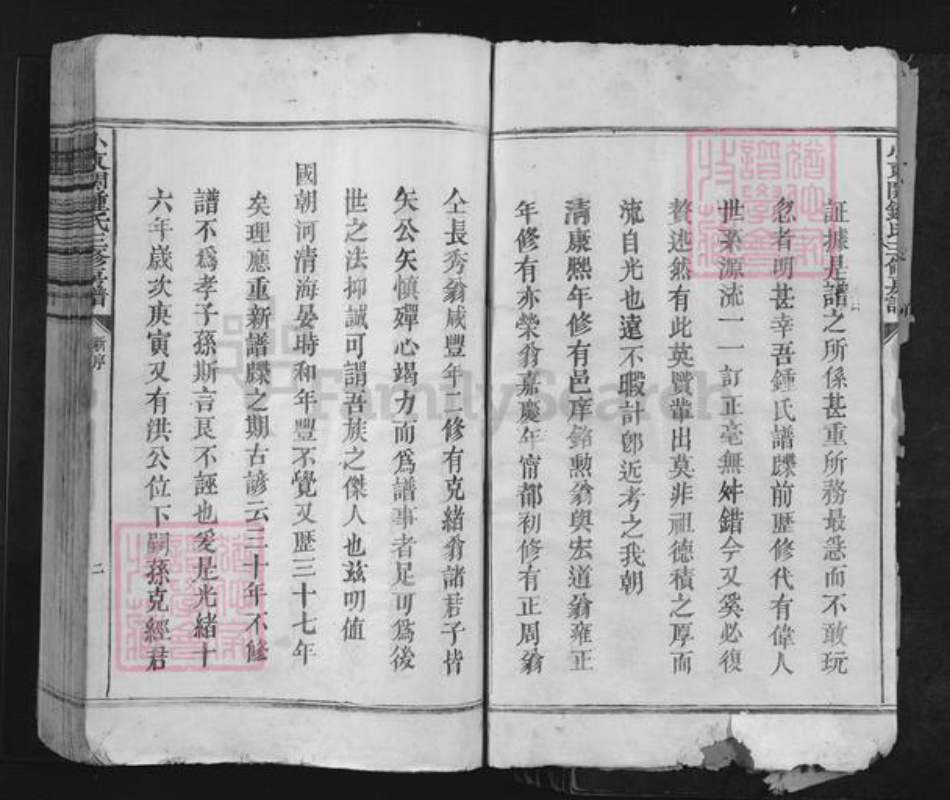 証據是譜之所係甚重所務最急而不敢玩
忽者明甚幸吾鍾氏譜牒前歷修代有偉人
世系源流一一訂正毫無舛錯今又奚必復
贅述然有此英賢輩出莫非祖德積之厚而
流自光也遠不暇計卽近考之我朝
清康熈年修有邑庠銘勲翁與宏道翁雍正
年修有亦榮翁嘉慶年甯都初修有正周翁
仝長秀翁咸豐年二修有克緒翁諸君子皆
矢公矢慎殫心竭力而爲譜事者足可爲後
世之法抑誠可謂吾族之傑人也兹明值
國朝河清海晏時和年豐不覺又歷三十七年
矣理應重新譜牒之期古諺云三十年不修
譜不爲孝子孫斯言良不誣也爰是光緒十
六年歲次庚寅又有洪公位下嗣孫克經君
鍾氏三修房譜
新序
二
FamilySearch